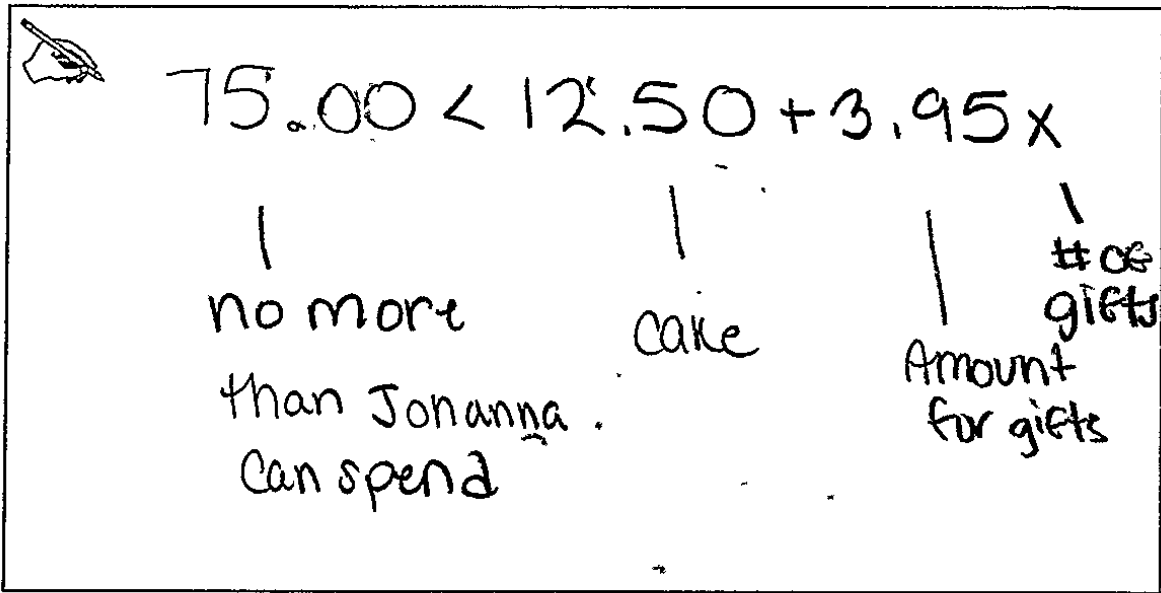 75.00 < 12.50 + 3.95x
no more
than Johanna.
can spend
cake
Amount
for gifts
# of
gifts